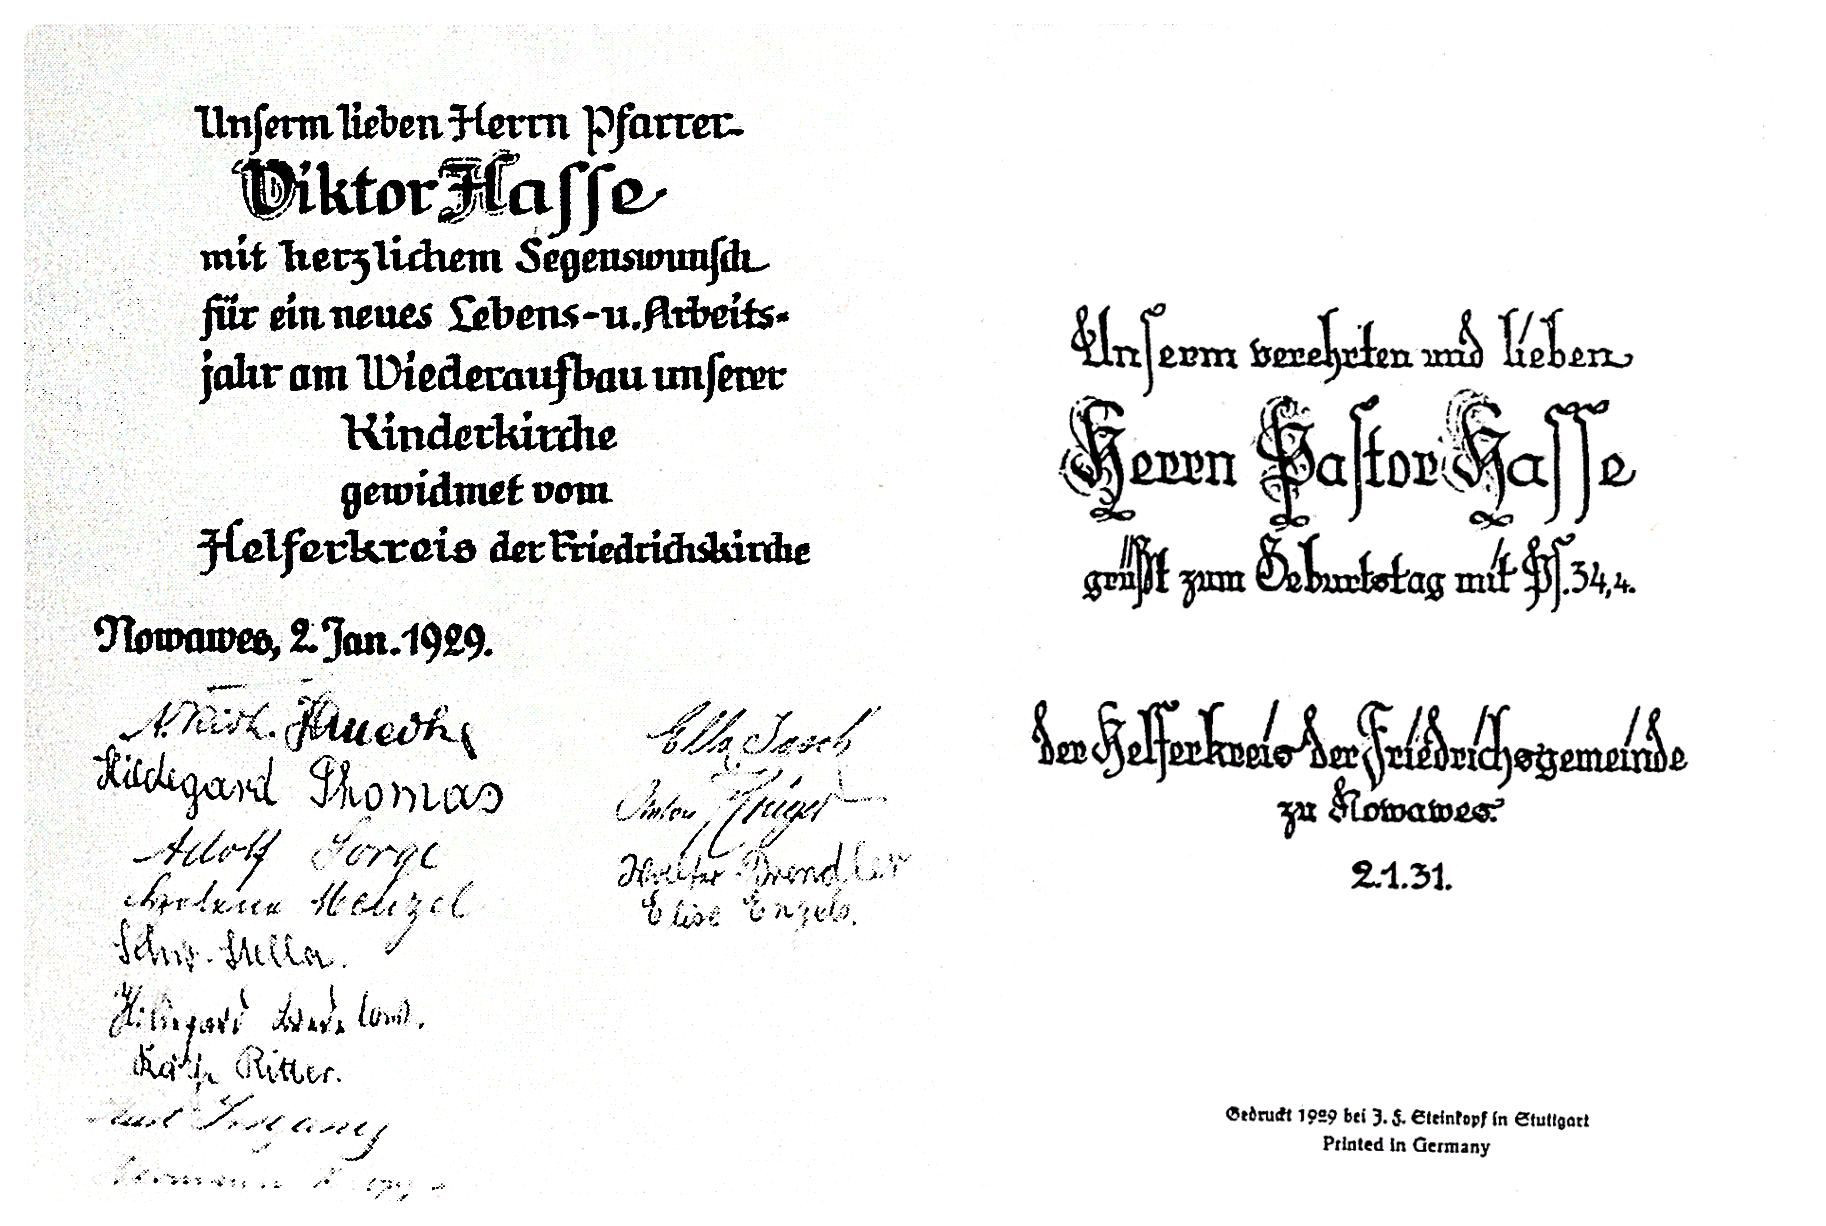 Unserm lieben Herrn Pfarrer
Viktor Hasse
mit herzlichem Segenswunsch
für ein neues Lebens-u. Arbeits-
jahr am Wiederaufbau unserer
Kinderkirche
gewidmet vom
Helferkreis der Friedrichskirche
Nowawes, 2. Jan. 1929.
Hildegard Thomas
Adolf Sorge
Menzel
Schw. Stella.
Hildegard
Käthe Ritter.
Ella Jasch
Anton Krüger
Walter Brendler
Elise Engels.
Unserm verehrten und lieben
Herrn Pastor Hasse
grüßt zum Geburtstag mit Ps. 34,4.
der Helferkreis der Friedrichsgemeinde
zu Nowawes.
2.1.31.
Gedruckt 1929 bei J. F. Steinkopf in Stuttgart
Printed in Germany